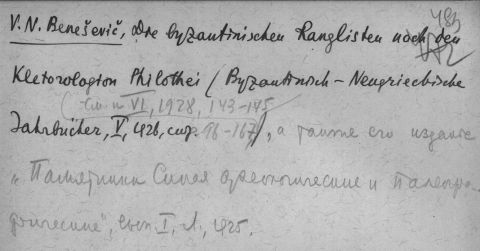 V. N. Benešević, Die byzantinischen Ranglisten nach den
Kletorologion Philothei / Byzantinisch-Neugriechische
VI, 1928, 143-145
Jahrbücher, V, 1926, стр. -167), а также его издание
„Памятники Синая археологические и палеогра-
фические", вып. I, Л., 1925.